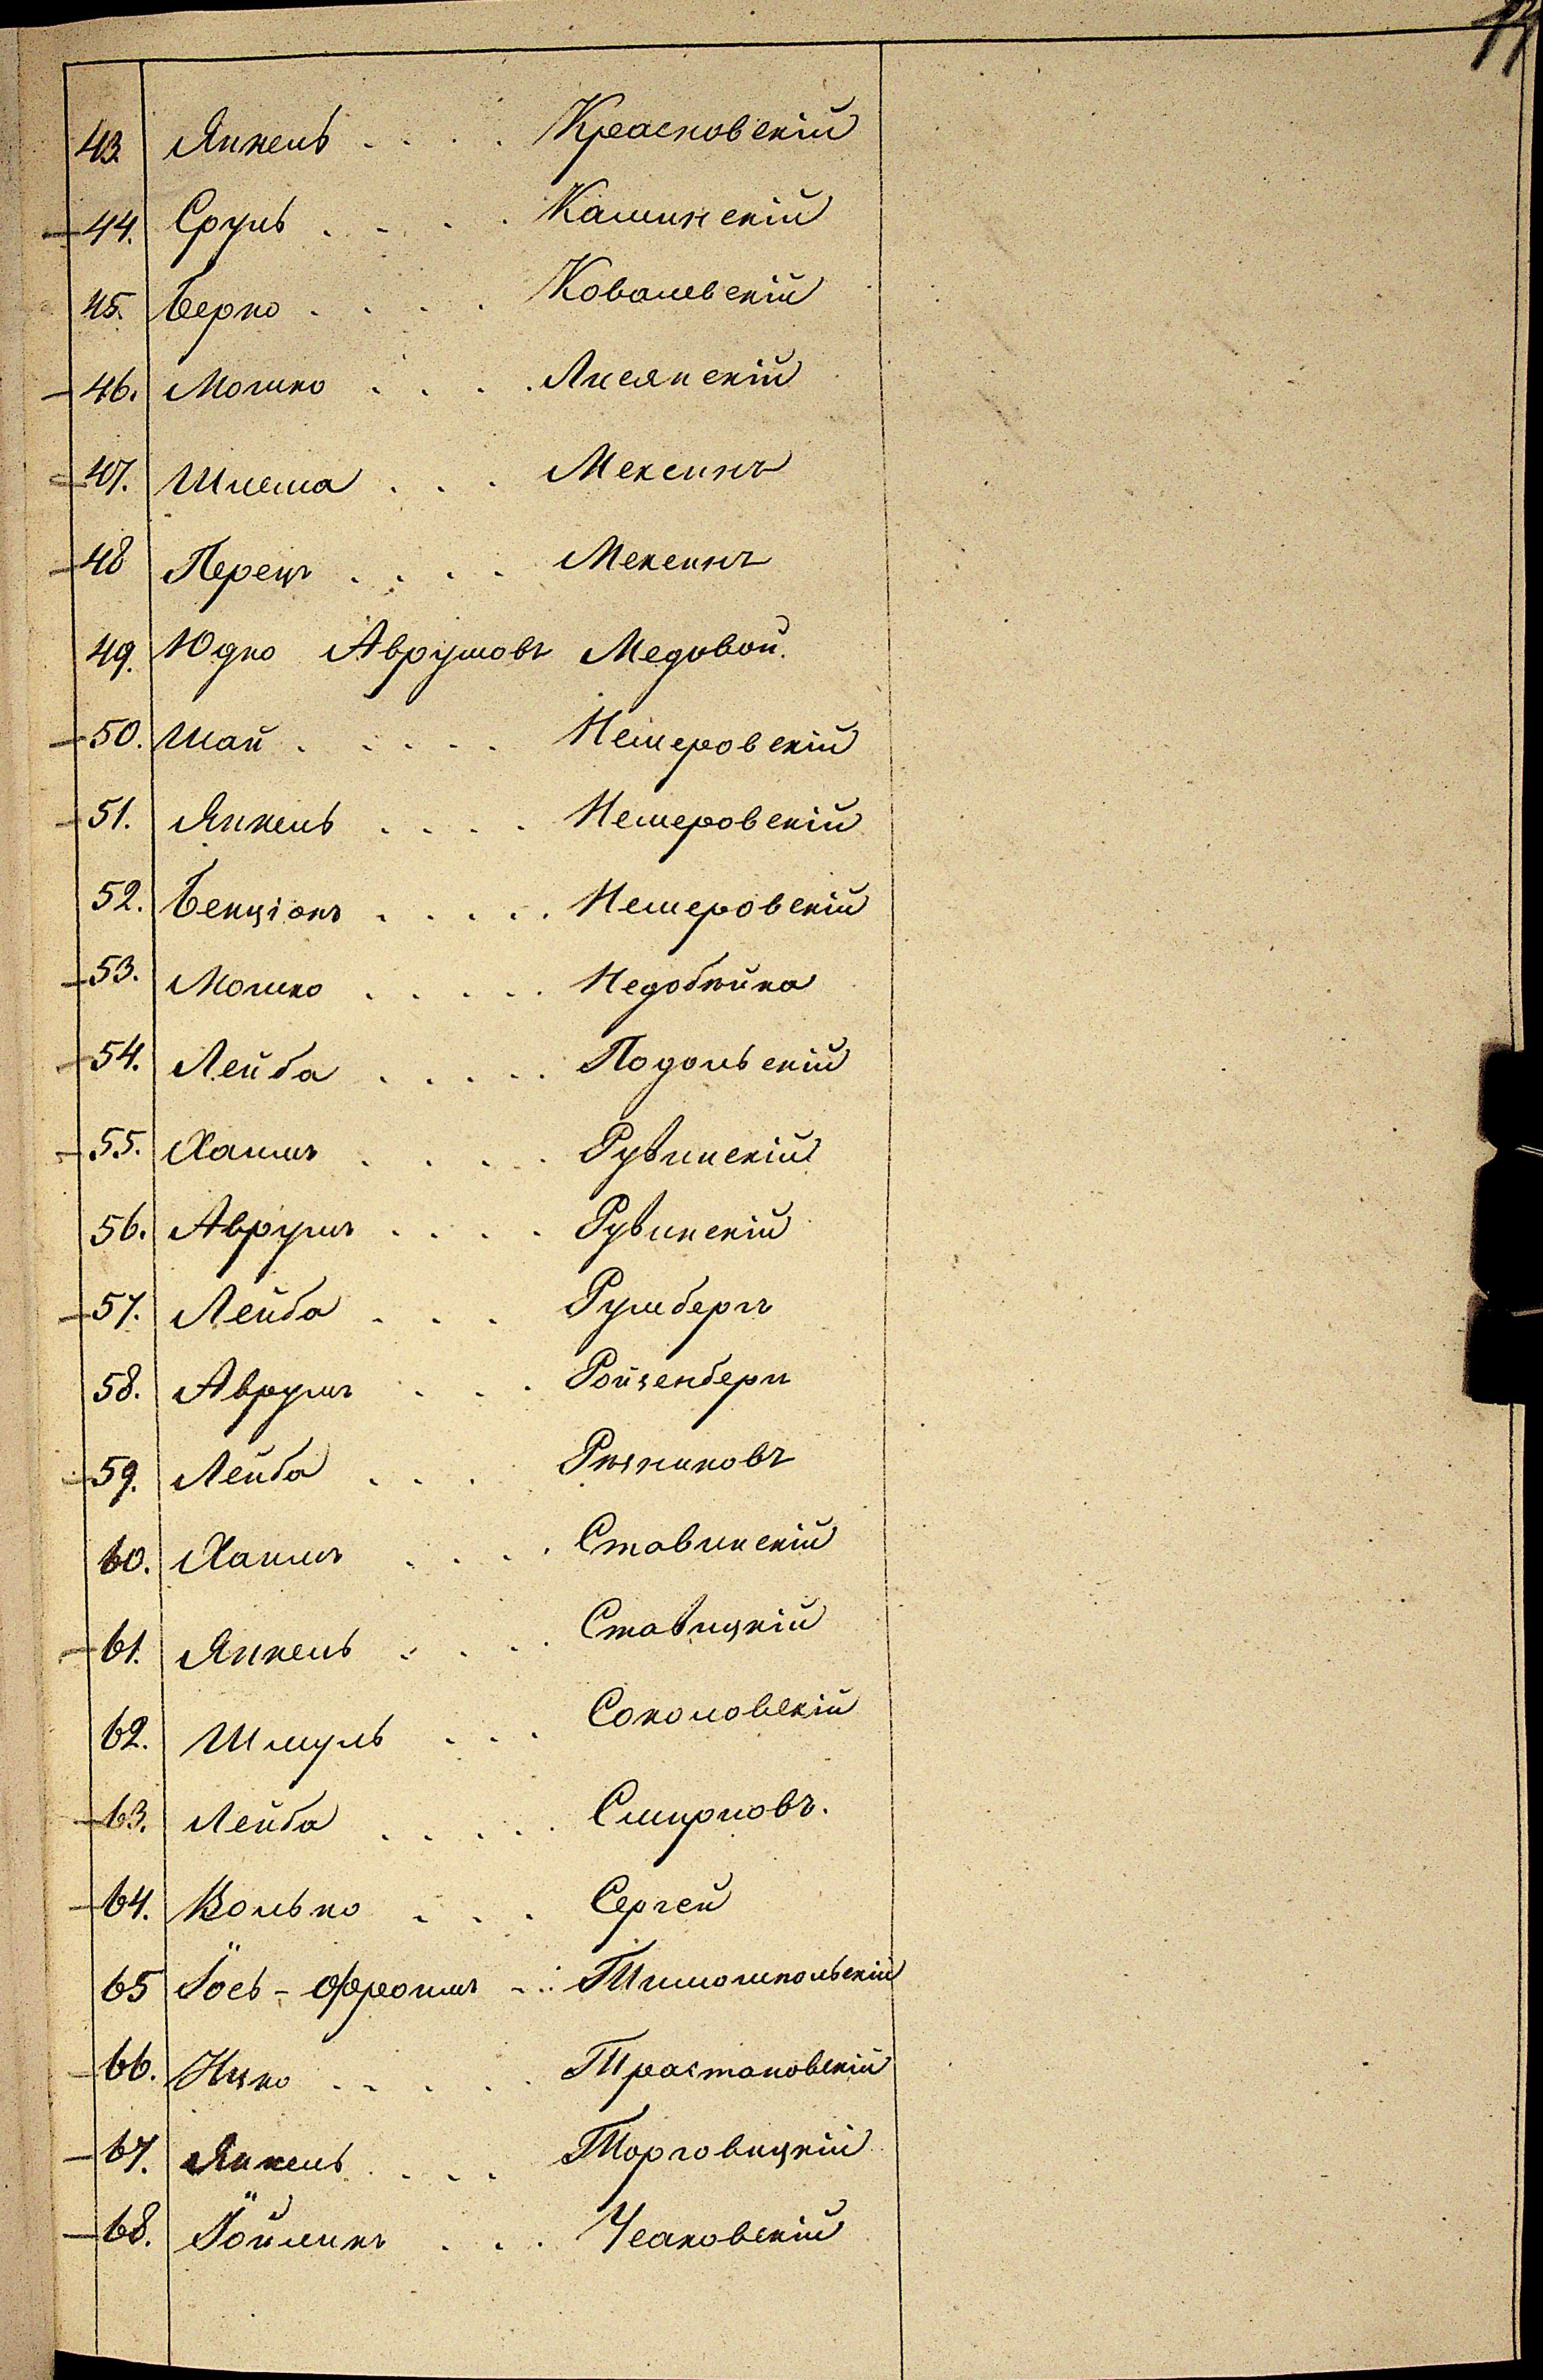 43. Янкель . . . . Красновскій
44. Сруль . . . . Каминскій
45. Берко . . . . Ковалевскій
46. Мошко . . . . Лисянскій
47. Шлема . . . Мексинъ
48 Перецъ . . . . Мексинъ
49. Юдко Аврумовъ Медовой.
50. Шай . . . . . Немеровскій
51. Янкель . . . . Немеровскій
52. Бенціонъ . . . . . Немеровскій
53. Мошко . . . . . Недобѣйка
54. Лейба . . . . . Подольскій
55. Хаимъ . . . . Рувинскій
56. Аврумъ . . . . Рувинскій
57. Лейба . . . Румбергъ
58. Аврумъ . . . Ройзенбергъ
59. Лейба . . . Рѣзниковъ
60. Хаимъ . . . . Ставинскій
61. Янкель . . . . Ставицкій
62. Шмуль . . . Соколовскій
63. Лейба . . . . . Смирновъ.
64. Волько . . . Сергей
65 Іось-Фроимъ . . . Тимошпольскій
66. Ицко . . . . . Трастановскій
67. Янкель . . . . Торговицкій
68. Іойликъ . . . Чеановскій